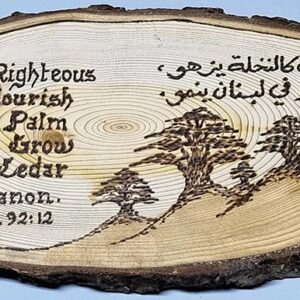 Righteous
lourish
Palm
Grow
Cedar
anon.
92:12
كالنخلة يزهو،
في لبنان ينمو.